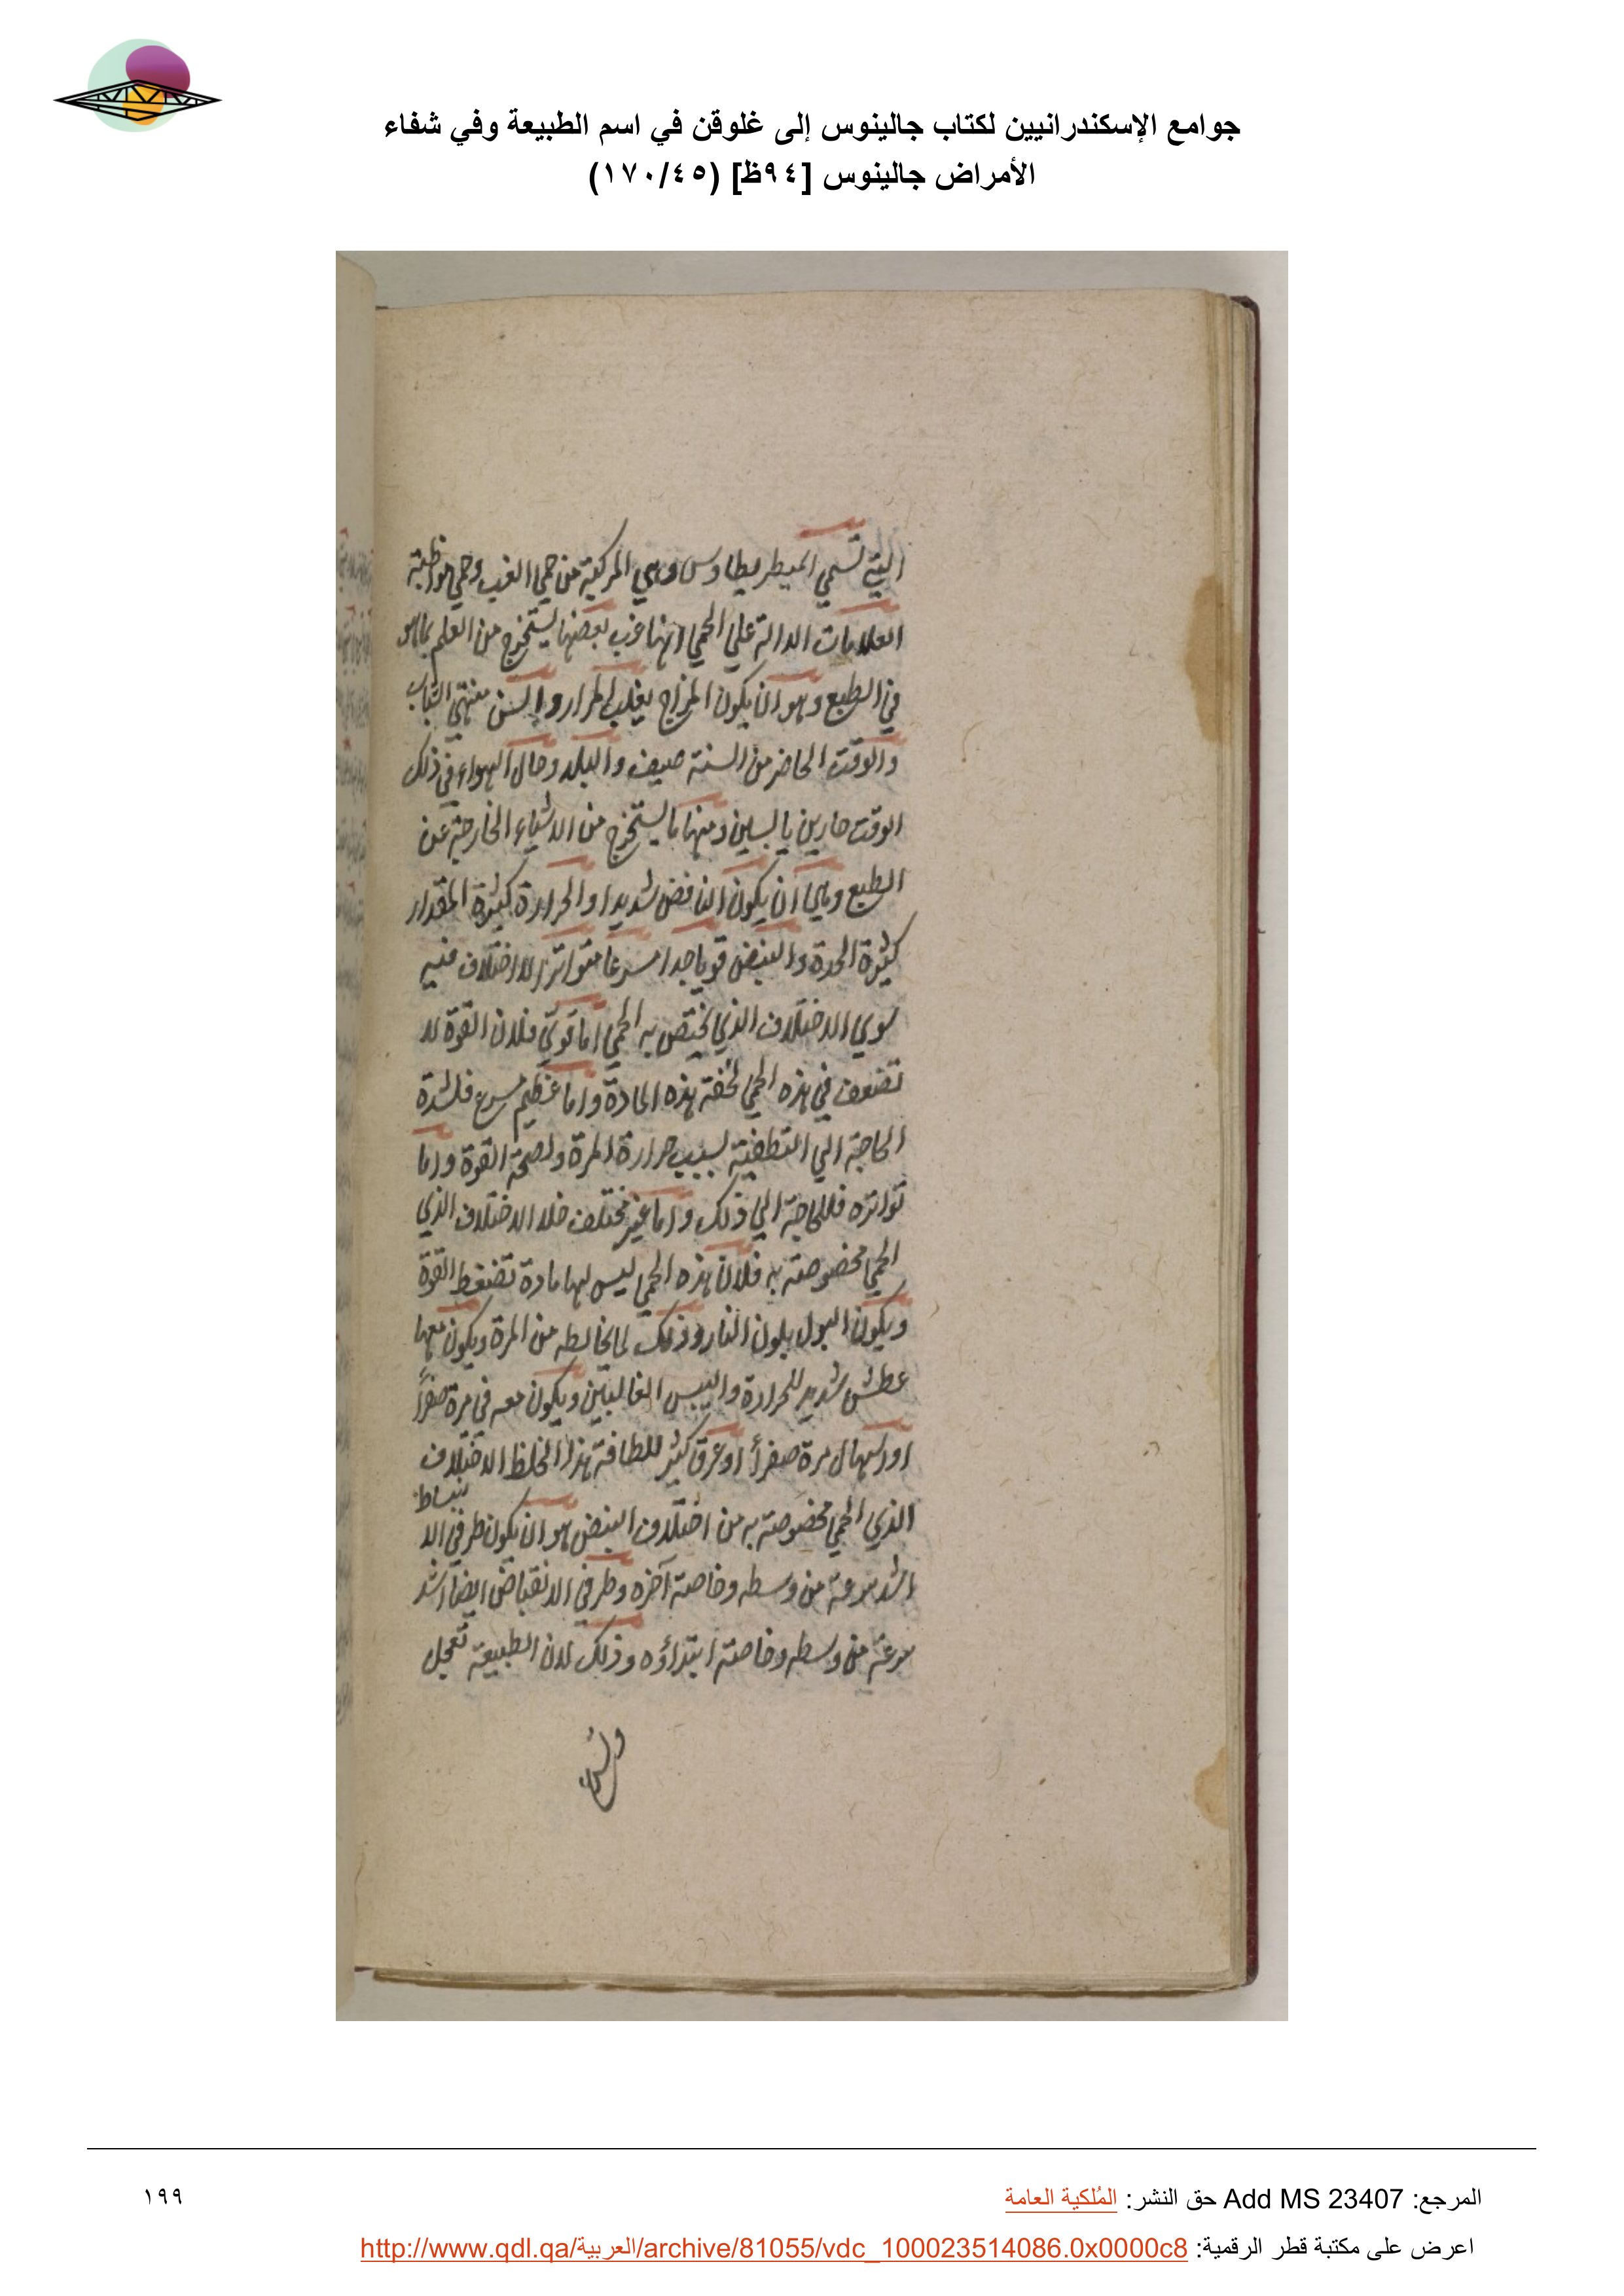 جوامع الإسكندرانيين لكتاب جالينوس إلى غلوقن في اسم الطبيعة وفي شفاء
الأمراض جالينوس [٩٤ظ] (١٧٠/٤٥)
التي تسمي الميطريطاوس وهي المركبة من حمي الغب وحمي مواظبة
العلامات الدالة علي الحمي انها غب بعضها يستخرج من العلم بما هو
في الطبع وهو ان يكون المزاج يغلب المرار والسن منتهي الشباب
والوقت الحاضر من السنة صيف والبلد وحال الهواء في ذلك
الوقت حارين يابسين ومنها ما يستخرج من الاشياء الخارجة عن
الطبع وهي ان يكون النافض شديدا والحرارة كثيرة المقدار
كثيرة الحدة والنبض قويا جدا سرعا متواترا لا اختلاف فيه
سوي الاختلاف الذي يختص به الحمي اما قوي فلان القوة لا
تضعف في هذه الحمي لخفة هذه المادة واما عظيم سرع فلشدة
الحاجة الي التطفية لسبب حرارة المرة ولصحة القوة واما
تواتره فللحاجة الي ذلك واما غير مختلف خلا الاختلاف الذي
الحمي مخصوصة به فلان هذه الحمي ليس لها مادة تضغط القوة
ويكون البول بلون النار وذلك لما يخالطه من المرة ويكون معها
عطش شديد للحرارة واليبس الغالبين ويكون معه في مرة صفرأ
او اسهال مرة صفرأ او عرق كثير للطافة هذا الخلط الاختلاف
الذي الحمي مخصوصة به من اختلاف النبض هو ان يكون طرفي الا نبساط
اشد سرعة من وسطه وخاصة آخره وطرفي الانقباض ايضا اشد
سرعة من وسطه وخاصة ابتداؤه وذلك لان الطبيعة تعجل
المرجع: Add MS 23407 حق النشر: المُلكية العامة
١٩٩
اعرض على مكتبة قطر الرقمية: http://www.qdl.qa/العربية/archive/81055/vdc_100023514086.0x0000c8